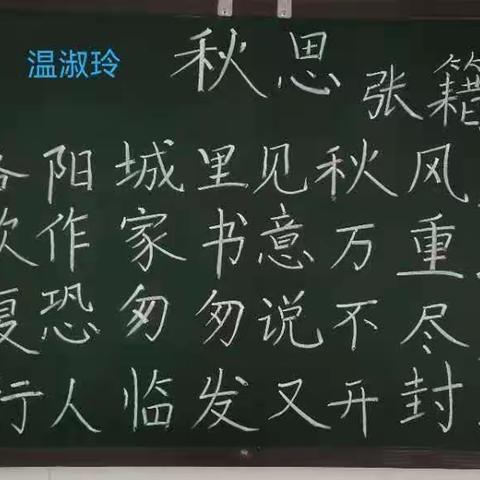 温淑玲
秋思
张籍
洛阳城里见秋风
欲作家书意万重
复恐匆匆说不尽
行人临发又开封